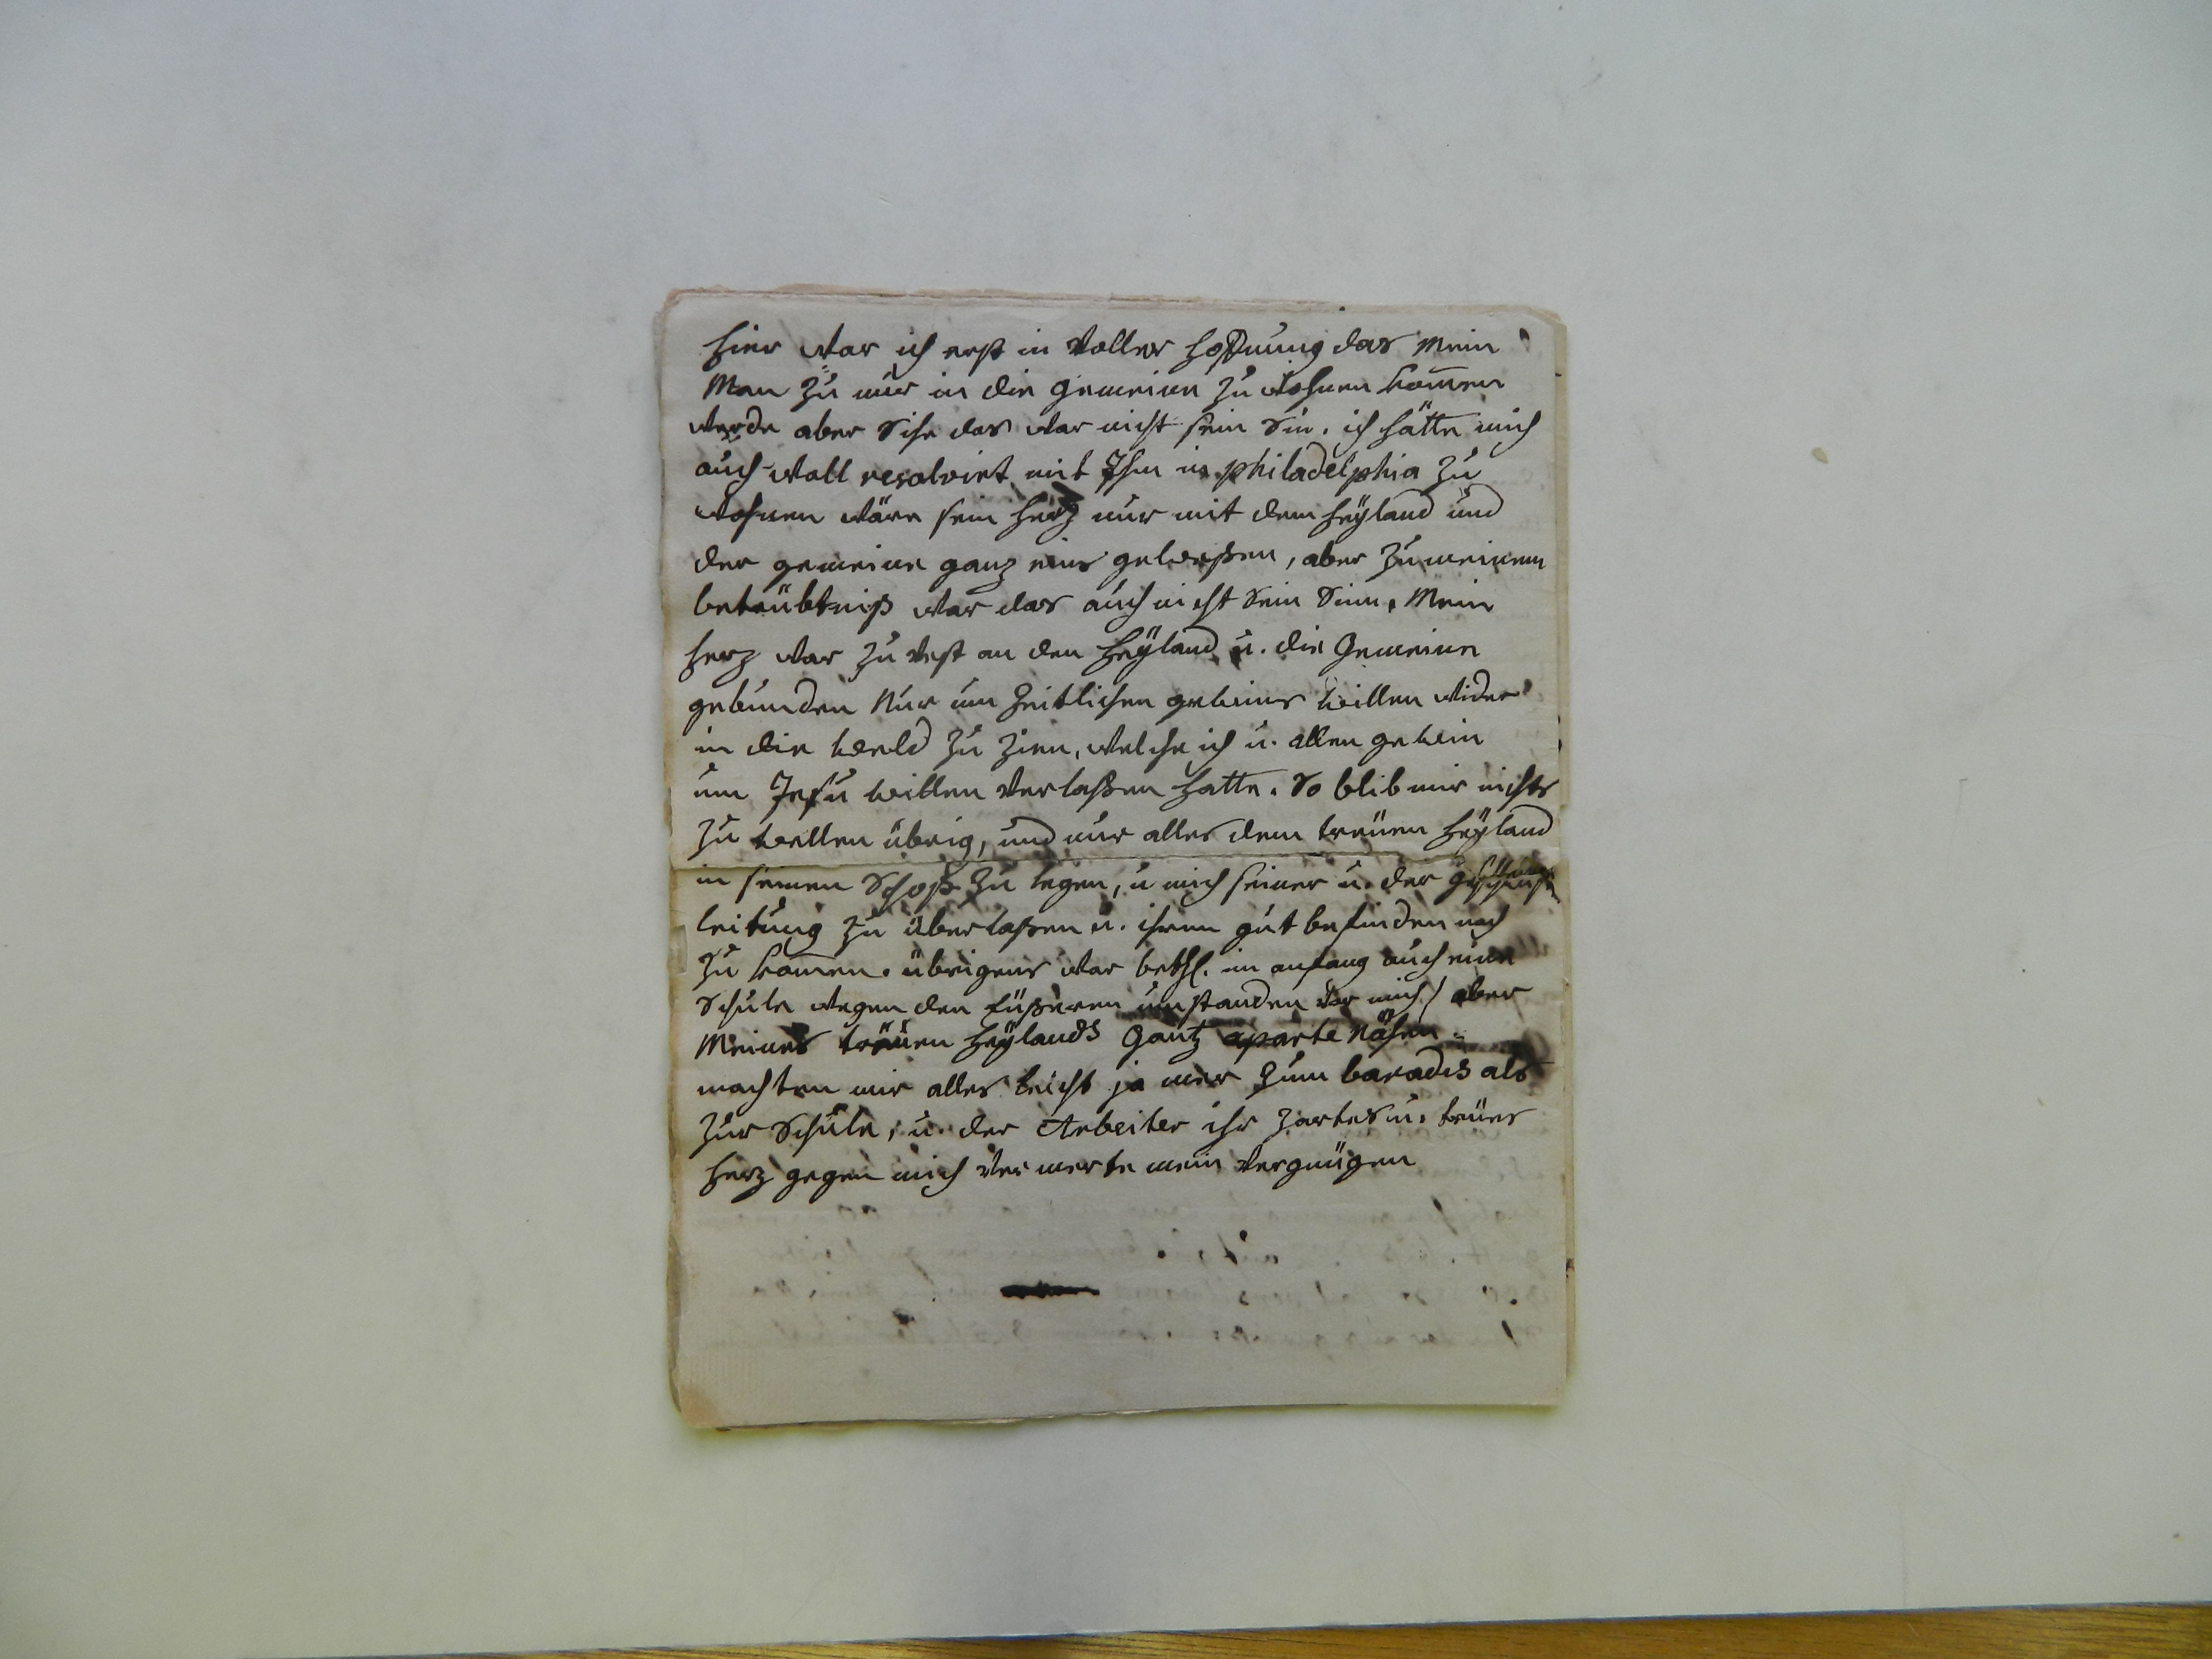 hier war ich erst in voller hoffnung das mein
Man zu mir in die gemeine zu wohnen kom̅en
werde aber Sihe das war nicht sein Sin. ich hätte mich
auch woll resolvirt mit Ihm in philadelphia zu
wohnen wäre sein herz nur mit dem heÿland und
der gemeine ganz eins geweßen, aber zu meinem
betrübtniß war das auch nicht sein Sinn, Mein
herz war zu vest an den heÿland u. die Gemeine
gebunden Nur um Zeitlichen gewins willen wider
in die weld zu zien, welche ich u. allen gewin
um Jesu willen verlaßen hatte. So blib mir nichts
zu wellen übrig, und nur alles dem treuen heÿland
in seinen Schoß zu legen, u mich seiner u. der
leitung zu überlaßen u. ihrem gut befinden nach
zu kom̅en. übrigens war bethl. im anfang auch eine
Schule wegen den eüßeren umstanden vor mich/ aber
Meines treuen heÿlands Gantz aparte Nähe
machten mir alles leicht ja mer zum baradis als
zur Schule, u. der Arbeiter ihr zartes u. treües
herz gegen mich vermerte mein vergnügen